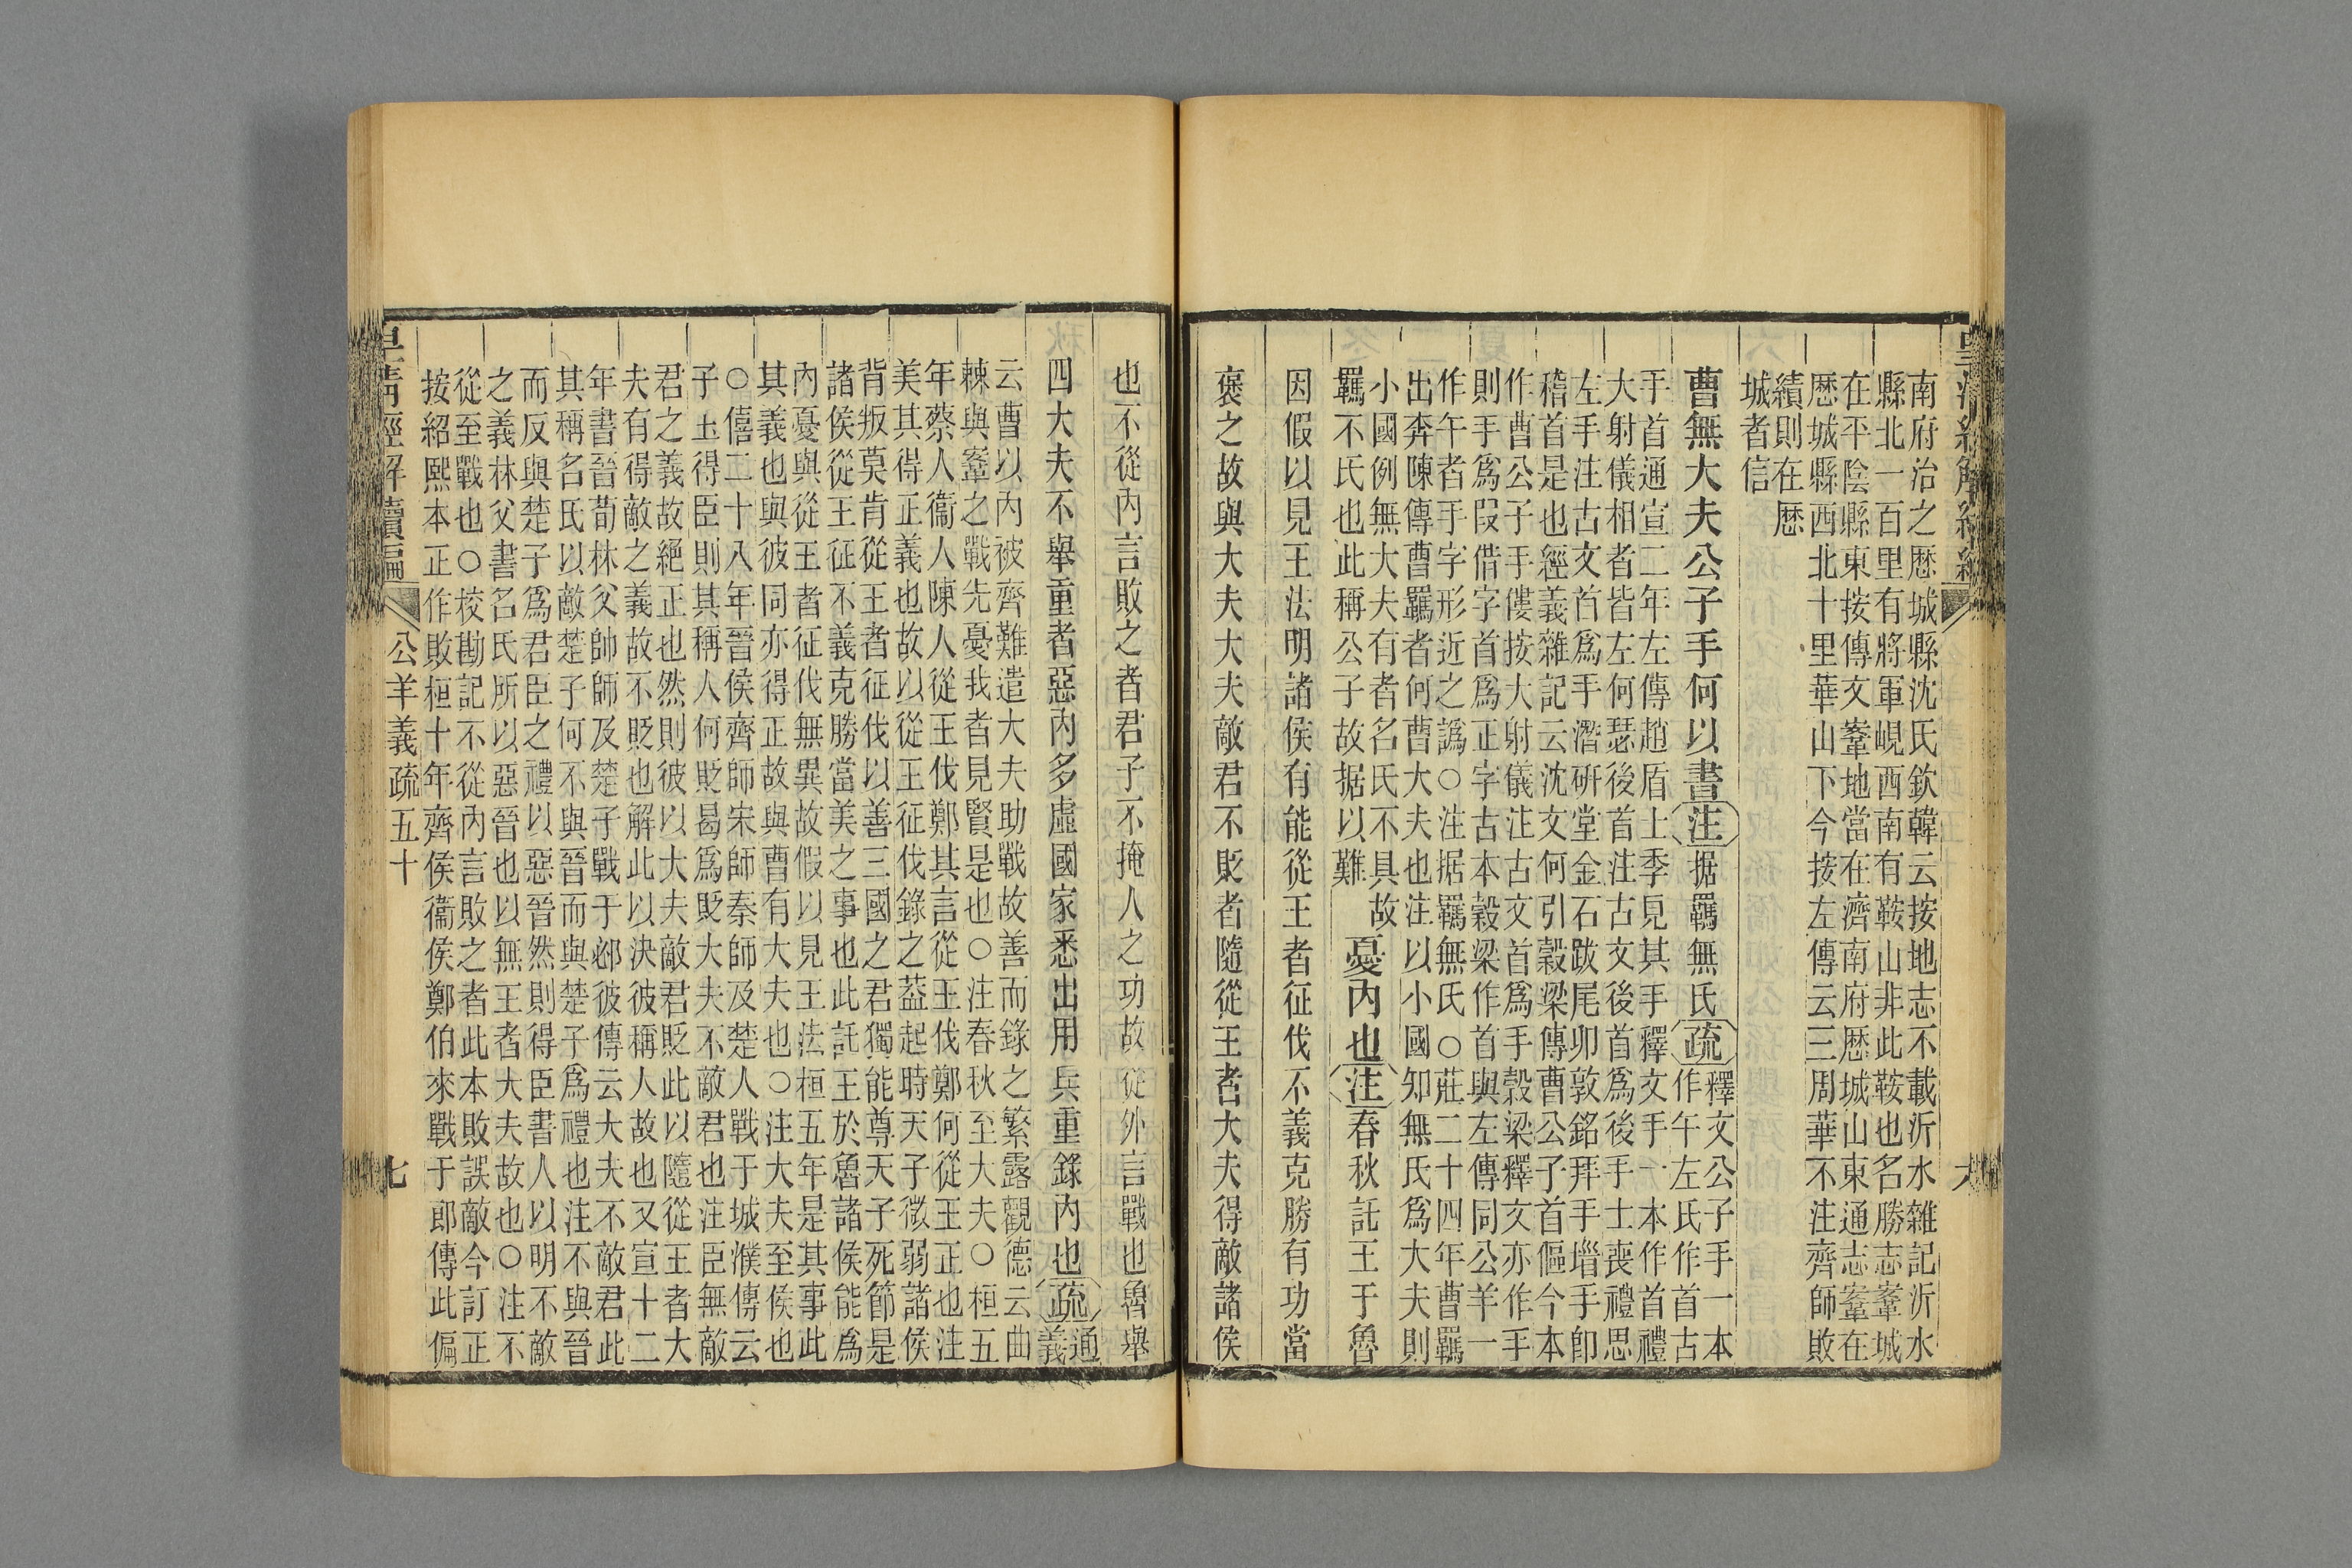 南府治之歷城縣沈氏欽韓云按地志不載沂水雜記沂水
縣北一百里有將軍峴西南有鞍山非此鞍也名勝志鞌城
在平陰縣東按傳文鞌地當在濟南府歷城山東通志鞌在
歷城縣西北十里華山下今按左傳云三周華不注齊師敗
績則在歷
城者信
曹無大夫公子手何以書
注
据羈無氏
疏
釋文公子手一本
作午左氏作首古
手首通宣二年左傳趙盾士季見其手釋文手一本作首禮
大射儀相者皆左何瑟後首注古文後首為後手士喪禮思
左手注古文首為手潛研堂金石跋尾卯敦銘拜手䭫手卽
稽首是也經義雜記云沈文何引穀梁傳曹公子首傴今本
作曹公子手僂按大射儀注古文首為手穀梁釋文亦作手
則手為叚借字首為正字古本穀梁作首與左傳同公羊一
作午者手字形近之譌○注据羈無氏○莊二十四年曹羈
出奔陳傳曹羈者何曹大夫也注以小國知無氏為大夫則
小國例無大夫有者名氏不具故
羈不氏也此稱公子故据以難
憂內也
注
春秋託王于魯
因假以見王法明諸侯有能從王者征伐不義克勝有功當
襃之故與大夫大夫敵君不貶者隨從王者大夫得敵諸侯
也不從內言敗之者君子不掩人之功故從外言戰也魯舉
四大夫不舉重者惡內多虛國家悉出用兵重錄內也
疏
通
義
云曹以內被齊難遣大夫助戰故善而錄之繁露觀德云曲
棘與鞌之戰先憂我者見賢是也○注春秋至大夫○桓五
年蔡人衞人陳人從王伐鄭其言從王伐鄭何從王正也注
美其得正義也故以從王征伐錄之蓋起時天子微弱諸侯
背叛莫肯從王者征伐以善三國之君獨能尊天子死節是
諸侯從王征不義克勝當美之事也此託王於魯諸侯能為
內憂與從王者征伐無異故假以見王法桓五年是其事此
其義也與彼同亦得正故與曹有大夫也○注大夫至侯也
○僖二十八年晉侯齊師宋師秦師及楚人戰于城濮傳云
子玉得臣則其稱人何貶曷為貶大夫不敵君也注臣無敵
君之義故絕正也然則彼以大夫敵君貶此以隨從王者大
夫有得敵之義故不貶也解此以決彼稱人故也又宣十二
年書晉荀林父帥師及楚子戰于邲彼傳云大夫不敵君此
其稱名氏以敵楚子何不與晉而與楚子為禮也注不與晉
而反與楚子為君臣之禮以惡晉然則得臣書人以明不敵
之義林父書名氏所以惡晉也以無王者大夫故也○注不
從至戰也○校勘記不從內言敗之者此本敗誤敵今訂正
按紹熙本正作敗桓十年齊侯衞侯鄭伯來戰于郎傳此偏
皇清經解續編
公羊義疏五十
七